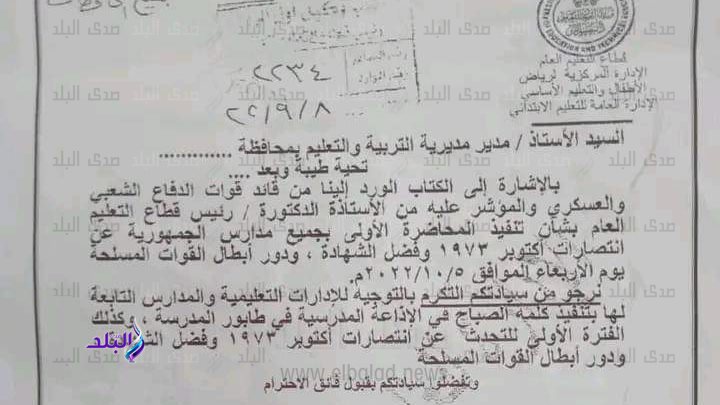 قطاع التعليم العام
الإدارة المركزية لرياض
الأطفال والتعليم الأساسي
الإدارة العامة للتعليم الابتدائي
٢٢٣٤
٢٢/٩/٨
السيد الأستاذ / مدير مديرية التربية والتعليم بمحافظة .............
تحية طيبة وبعد ....
بالإشارة إلى الكتاب الورد إلينا من قائد قوات الدفاع الشعبي
والعسكري والمؤشر عليه من الأستاذة الدكتورة / رئيس قطاع التعليم
العام بشأن تنفيذ المحاضرة الأولى بجميع مدارس الجمهورية عن
انتصارات أكتوبر ١٩٧٣ وفضل الشهادة ، ودور أبطال القوات المسلحة
يوم الأربعاء الموافق ٢٠٢٢/١٠/٥م.
نرجو من سيادتكم التكرم بالتوجيه للإدارات التعليمية والمدارس التابعة
لها بتنفيذ كلمة الصباح في الإذاعة المدرسية في طابور المدرسة ، وكذلك
الفترة الأولى للتحدث عن انتصارات أكتوبر ١٩٧٣ وفضل
ودور أبطال القوات المسلحة
وتفضلوا سيادتكم بقبول فائق الاحترام
صدى البلد
www.elbalad.news